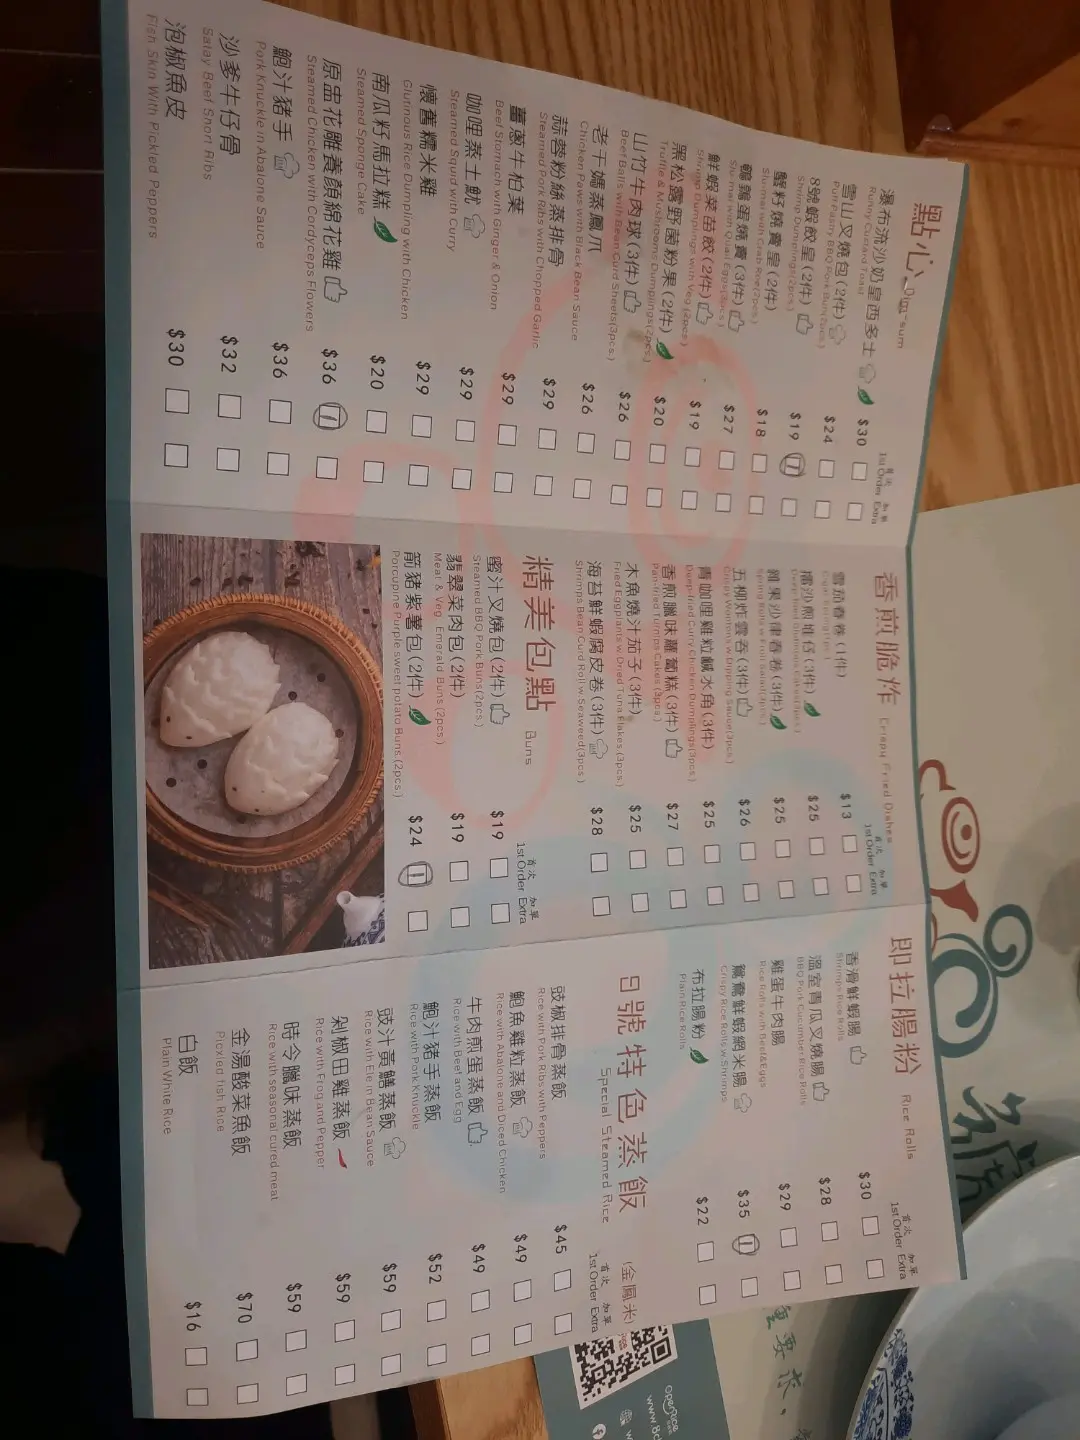 點心 Dim-sum
首次 加單
1st Order Extra
瀑布流沙奶皇西多士 $30
Runny Custard Toast
雪山叉燒包(2件) $24
Puff Pastry BBQ Pork Buns(2pcs.)
8號蝦餃皇(2件) $19 1
Shrimp Dumplings(2pcs.)
蟹籽燒賣皇(2件) $18
Siu mai with Crab Roe(2pcs.)
鵪鶉蛋燒賣(3件) $27
Siu mai with Quail Eggs(3pcs.)
鮮蝦菜苗餃(2件) $19
Shrimp Dumplings with Veg.(2pcs.)
黑松露野菌粉果(2件) $20
Truffle & Mushrooms Dumplings(2pcs.)
山竹牛肉球(3件) $26
Beef Balls with Bean Curd Sheets(3pcs.)
老干媽蒸鳳爪 $26
Chicken Paws with Black Bean Sauce
蒜蓉粉絲蒸排骨 $29
Steamed Pork Ribs with Chopped Garlic
薑蔥牛柏葉 $29
Beef Stomach with Ginger & Onion
咖哩蒸土魷 $29
Steamed Squid with Curry
懷舊糯米雞 $29
Glutinous Rice Dumpling with Chicken
南瓜籽馬拉糕 $20
Steamed Sponge Cake
原盅花雕養顏綿花雞 $36 1
Steamed Chicken with Cordyceps Flowers
鮑汁豬手 $36
Pork Knuckle in Abalone Sauce
沙爹牛仔骨 $32
Satay Beef Short Ribs
泡椒魚皮 $30
Fish Skin With Pickled Peppers
香煎脆炸 Crispy Fried Dishes
首次 加單
1st Order Extra
雪茄春卷(1件) $13
擂沙煎堆仔(3件) $25
雜果沙律春卷(3件) $25
五柳炸雲吞(3件) $26
Crispy Wontons w Dipping Sauce(3pcs.)
青咖哩雞粒鹹水角(3件) $25
Deep-fried Curry Chicken Dumplings(3pcs.)
香煎臘味蘿蔔糕(3件) $27
Pan-fried Turnips Cakes (3pcs.)
木魚燒汁茄子(3件) $25
Fried Eggplants w Dried Tuna Flakes (3pcs.)
海苔鮮蝦腐皮卷(3件) $28
Shrimps Bean Curd Roll w Seaweed(3pcs.)
精美包點 Buns
首次 加單
1st Order Extra
蜜汁叉燒包(2件) $19
Steamed BBQ Pork Buns(2pcs.)
翡翠菜肉包(2件) $19
Meat & Veg. Emerald Buns (2pcs)
箭豬紫薯包(2件) $24 1
Porcupine Purple sweet potato Buns (2pcs.)
即拉腸粉 Rice Rolls
首次 加單
1st Order Extra
香滑鮮蝦腸 $30
Shrimps Rice Rolls
溫室青瓜叉燒腸 $28
BBQ Pork Cucumber Rice Rolls
雞蛋牛肉腸 $29
Rice Rolls with Beef&Eggs
鴛鴦鮮蝦網米腸 $35 1
Crispy Rice Rolls w Shrimps
布拉腸粉 $22
Plain Rice Rolls
日號特色蒸飯 (金鳳米)
Special Steamed Rice
首次 加單
1st Order Extra
豉椒排骨蒸飯 $45
Rice with Pork Ribs with Peppers
鮑魚雞粒蒸飯 $49
Rice with Abalone and Diced Chicken
牛肉煎蛋蒸飯 $49
Rice with Beef and Egg
鮑汁豬手蒸飯 $52
Rice with Pork Knuckle
豉汁黃鱔蒸飯 $59
Rice with Ele in Bean Sauce
剁椒田雞蒸飯 $59
Rice with Frog and Pepper
時令臘味蒸飯 $59
Rice with seasonal cured meat
金湯酸菜魚飯 $70
Pickled fish Rice
白飯 $16
Plain White Rice
重要求
openrice